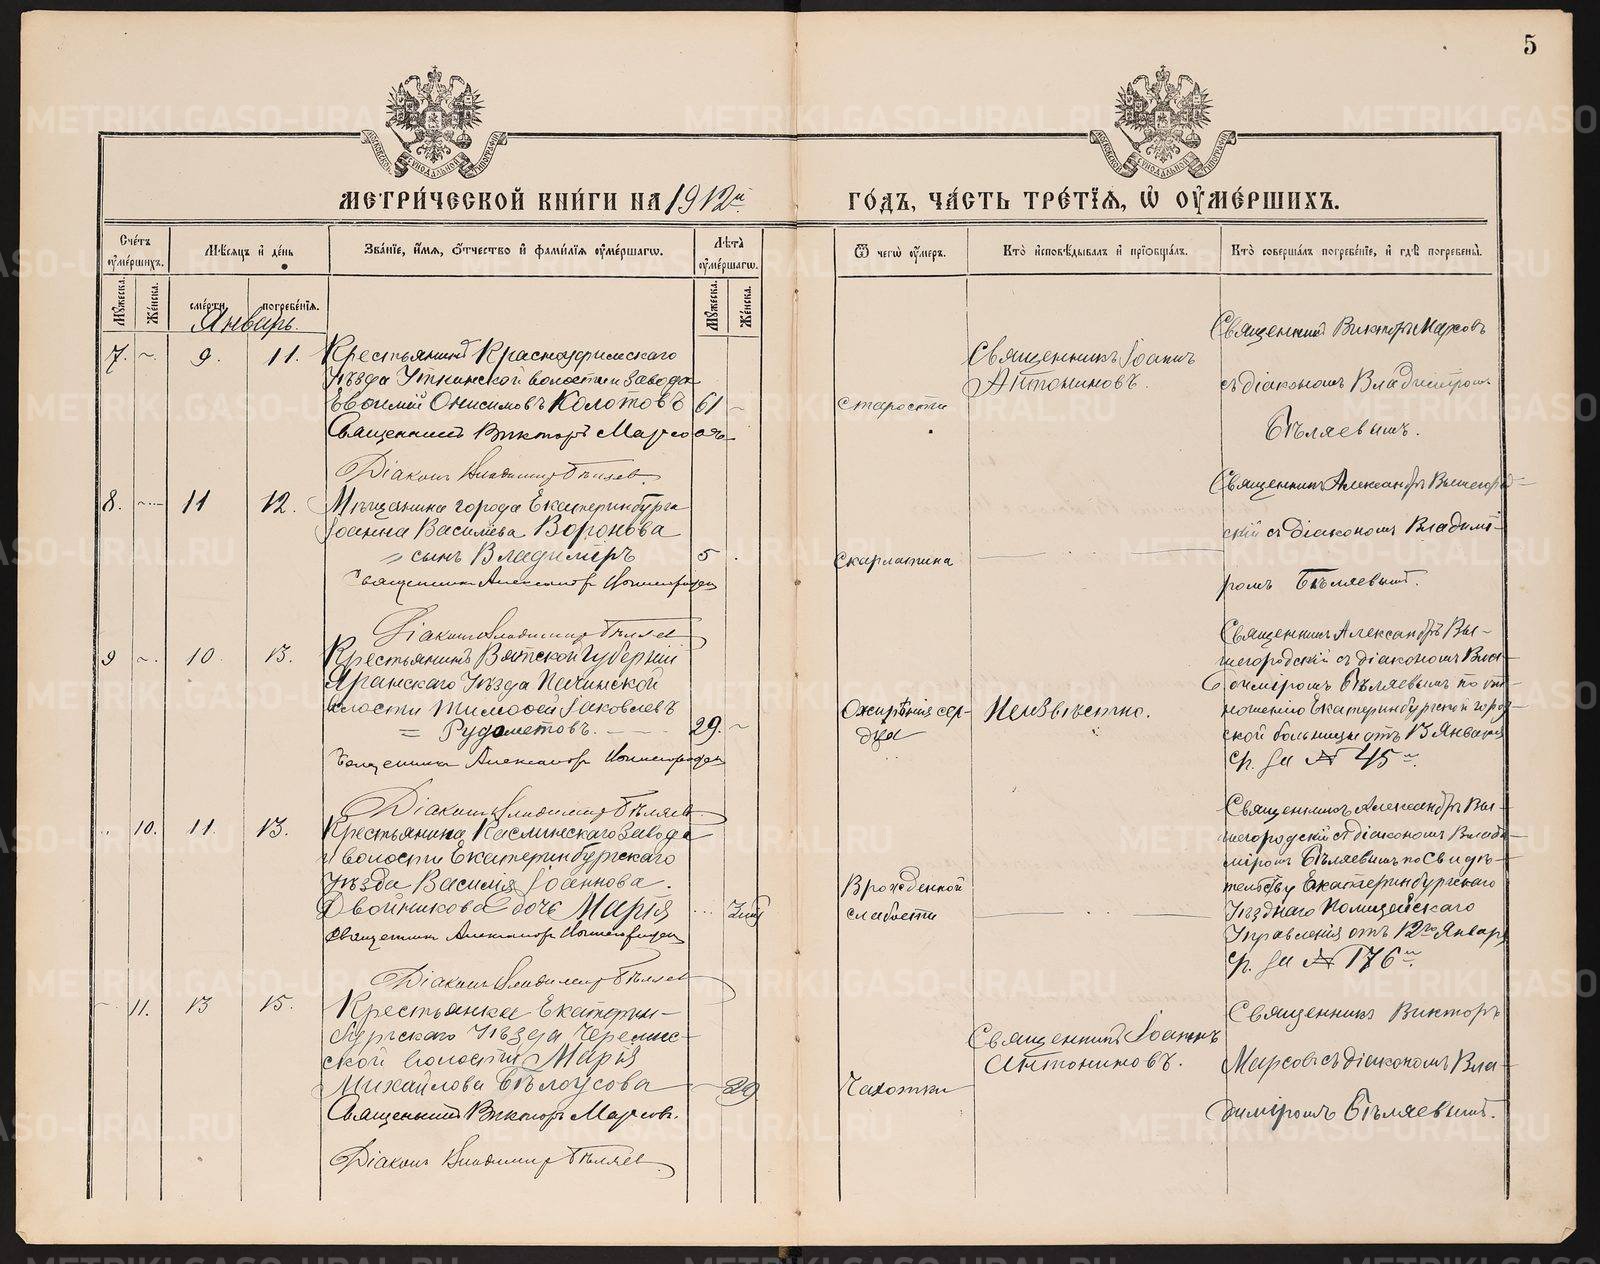 5
МЕТРИ́ЧЕСКОЙ КНИ́ГИ НА 1912й
ГО́ДЪ, ЧА́СТЬ ТРЕ́ТЇѦ, Ѡ ОУ҆МЕ́РШИХЪ.
Сче́тъ оу҆ме́ршихъ.
Мѣ́сяцъ и҆ де́нь
Зва́нїе, и҆́мя, ѻ҆́тчество и҆ фами́лїя оу҆ме́ршагѡ.
Лѣ́та оу҆ме́ршагѡ.
Ѿ чегѡ̀ оу҆́меръ.
Кто̀ и҆сповѣ́дывалъ и҆ прїѡбща́лъ.
Кто̀ соверша́лъ погребе́нїе, и҆ гдѣ̀ погребены̀.
Му́жеска.
Же́нска.
сме́рти.
погребе́нїя.
Му́жеска.
Же́нска.
Январь.
7. ~ 9. 11.
Крестьянинъ Красноуфимскаго
Уѣзда Уткинской волости и завода
Евѳимій Онисимовъ Колотовъ 61 ~
Священникъ Викторъ Марсовъ
Діаконъ Владимиръ Бѣляевъ
старости
Священникъ Іоаннъ
Антониновъ.
Священникъ Викторъ Марсовъ
съ діакономъ Владиміромъ
Бѣляевымъ.
8. ~ 11 12.
Мѣщанина города Екатеринбурга
Іоанна Васильева Воронова
" сынъ Владиміръ 5
Священникъ Александръ Вышегородскій
Діаконъ Владимиръ Бѣляевъ
Скарлатина
Священникъ Александръ Вышегород-
скій съ діакономъ Владимі-
ромъ Бѣляевымъ.
9 ~ 10. 13.
Крестьянинъ Вятской губерніи
Яранскаго Уѣзда
волости Тимоѳей Іаковлевъ
= Рудометовъ. 29. ~
Священникъ Александръ Вышегородскій
Діаконъ Владимиръ Бѣляевъ
Ожирѣнія сер-
дца
Неизвѣстно.
Священникъ Александръ Вы-
шегородскій съ діакономъ Вла-
диміромъ Бѣляевымъ по от-
ношенію Екатеринбургской город-
ской больницы отъ 13 Января
ср. за № 45м.
10. 11. 13.
Крестьянина Каслинскаго завода
и волости Екатеринбургскаго
Уѣзда Василія Іоаннова
Двойникова дочь Марія
Священникъ Александръ Вышегородскій
Діаконъ Владимиръ Бѣляевъ
Врожденной
слабости
Священникъ Александръ Вы-
шегородскій съ діакономъ Влади-
міромъ Бѣляевымъ по Свидѣ-
тельству Екатеринбургскаго
Уѣзднаго Полицейскаго
Управленія отъ 12го Января
ср. за № 176м.
11. 13 15.
Крестьянка Екатерин-
бургскаго Уѣзда
ской волости Марія
Михайлова Бѣлоусова 29
Священникъ Викторъ Марсовъ.
Діаконъ Владимиръ Бѣляевъ
Чахотки
Священникъ Іоаннъ
Антониновъ.
Священникъ Викторъ
Марсовъ съ діакономъ Вла-
диміромъ Бѣляевымъ.
METRIKI.GASO-URAL.RU